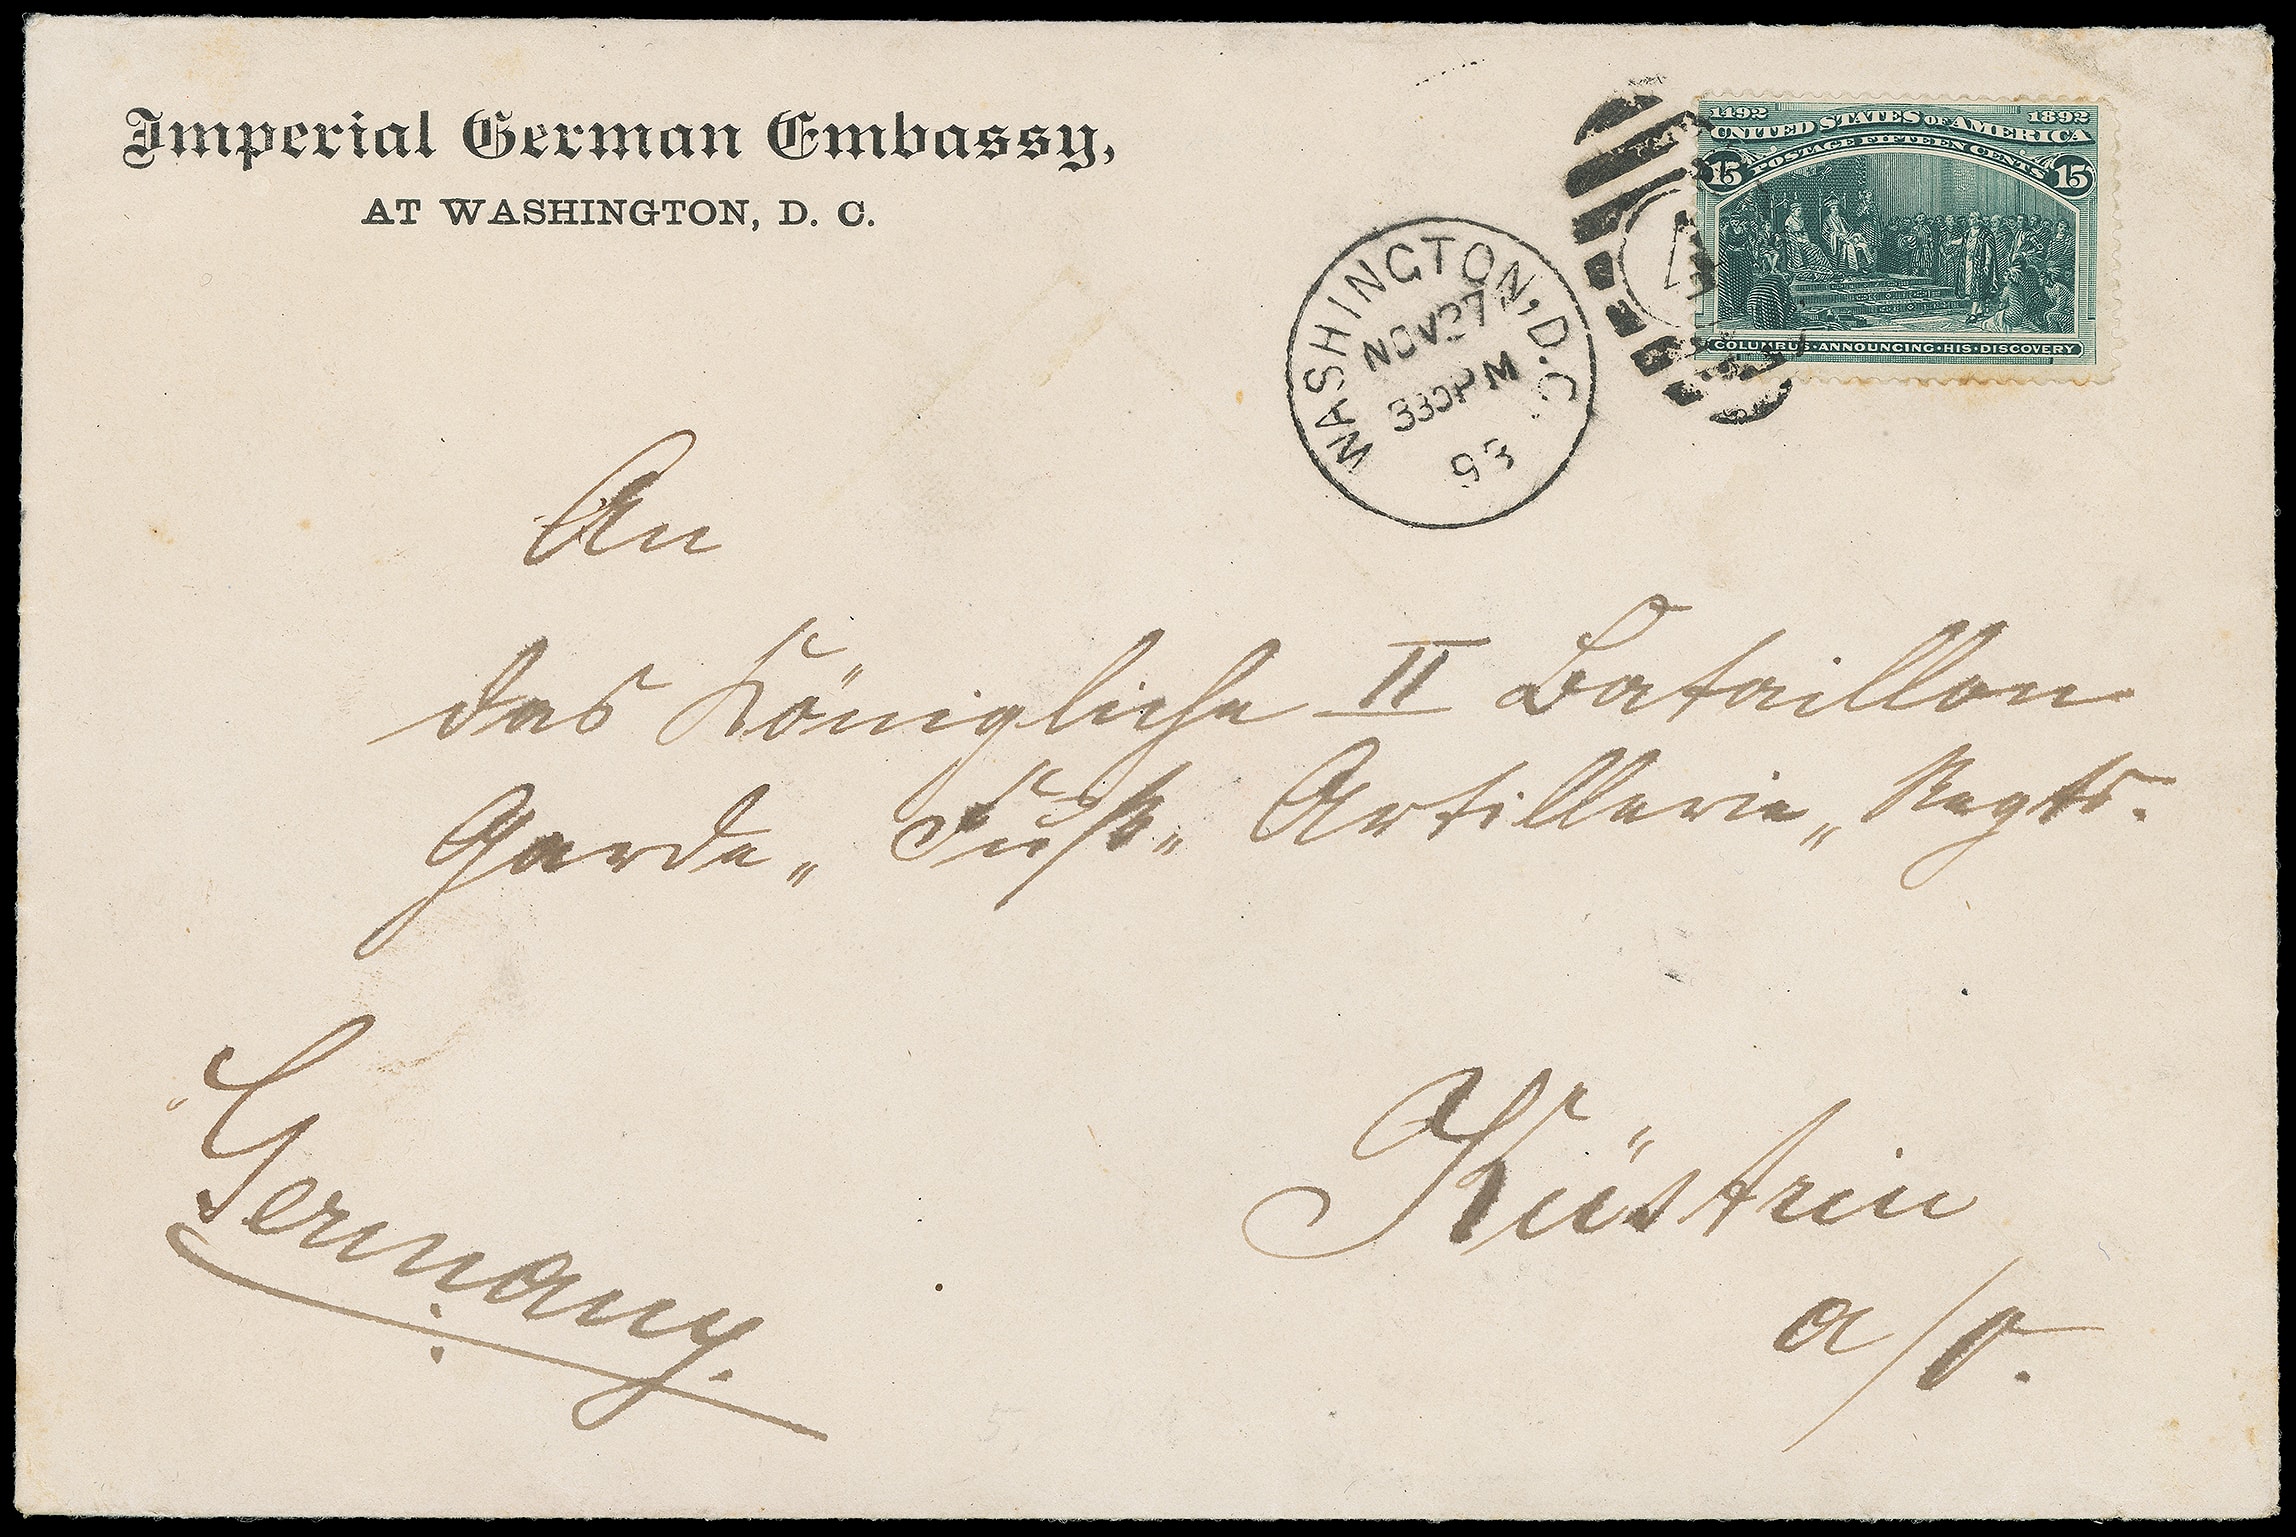 Imperial German Embassy,
AT WASHINGTON, D. C.
1492 1892
UNITED STATES OF AMERICA
POSTAGE FIFTEEN CENTS
15 15
COLUMBUS·ANNOUNCING·HIS·DISCOVERY
WASHINGTON, D.C.
NOV 27
330PM
93
An
das Königliche II Bataillon
Garde „ Fuß „ Artillerie „ Regts.
Küstrin
a/O.
Germany.